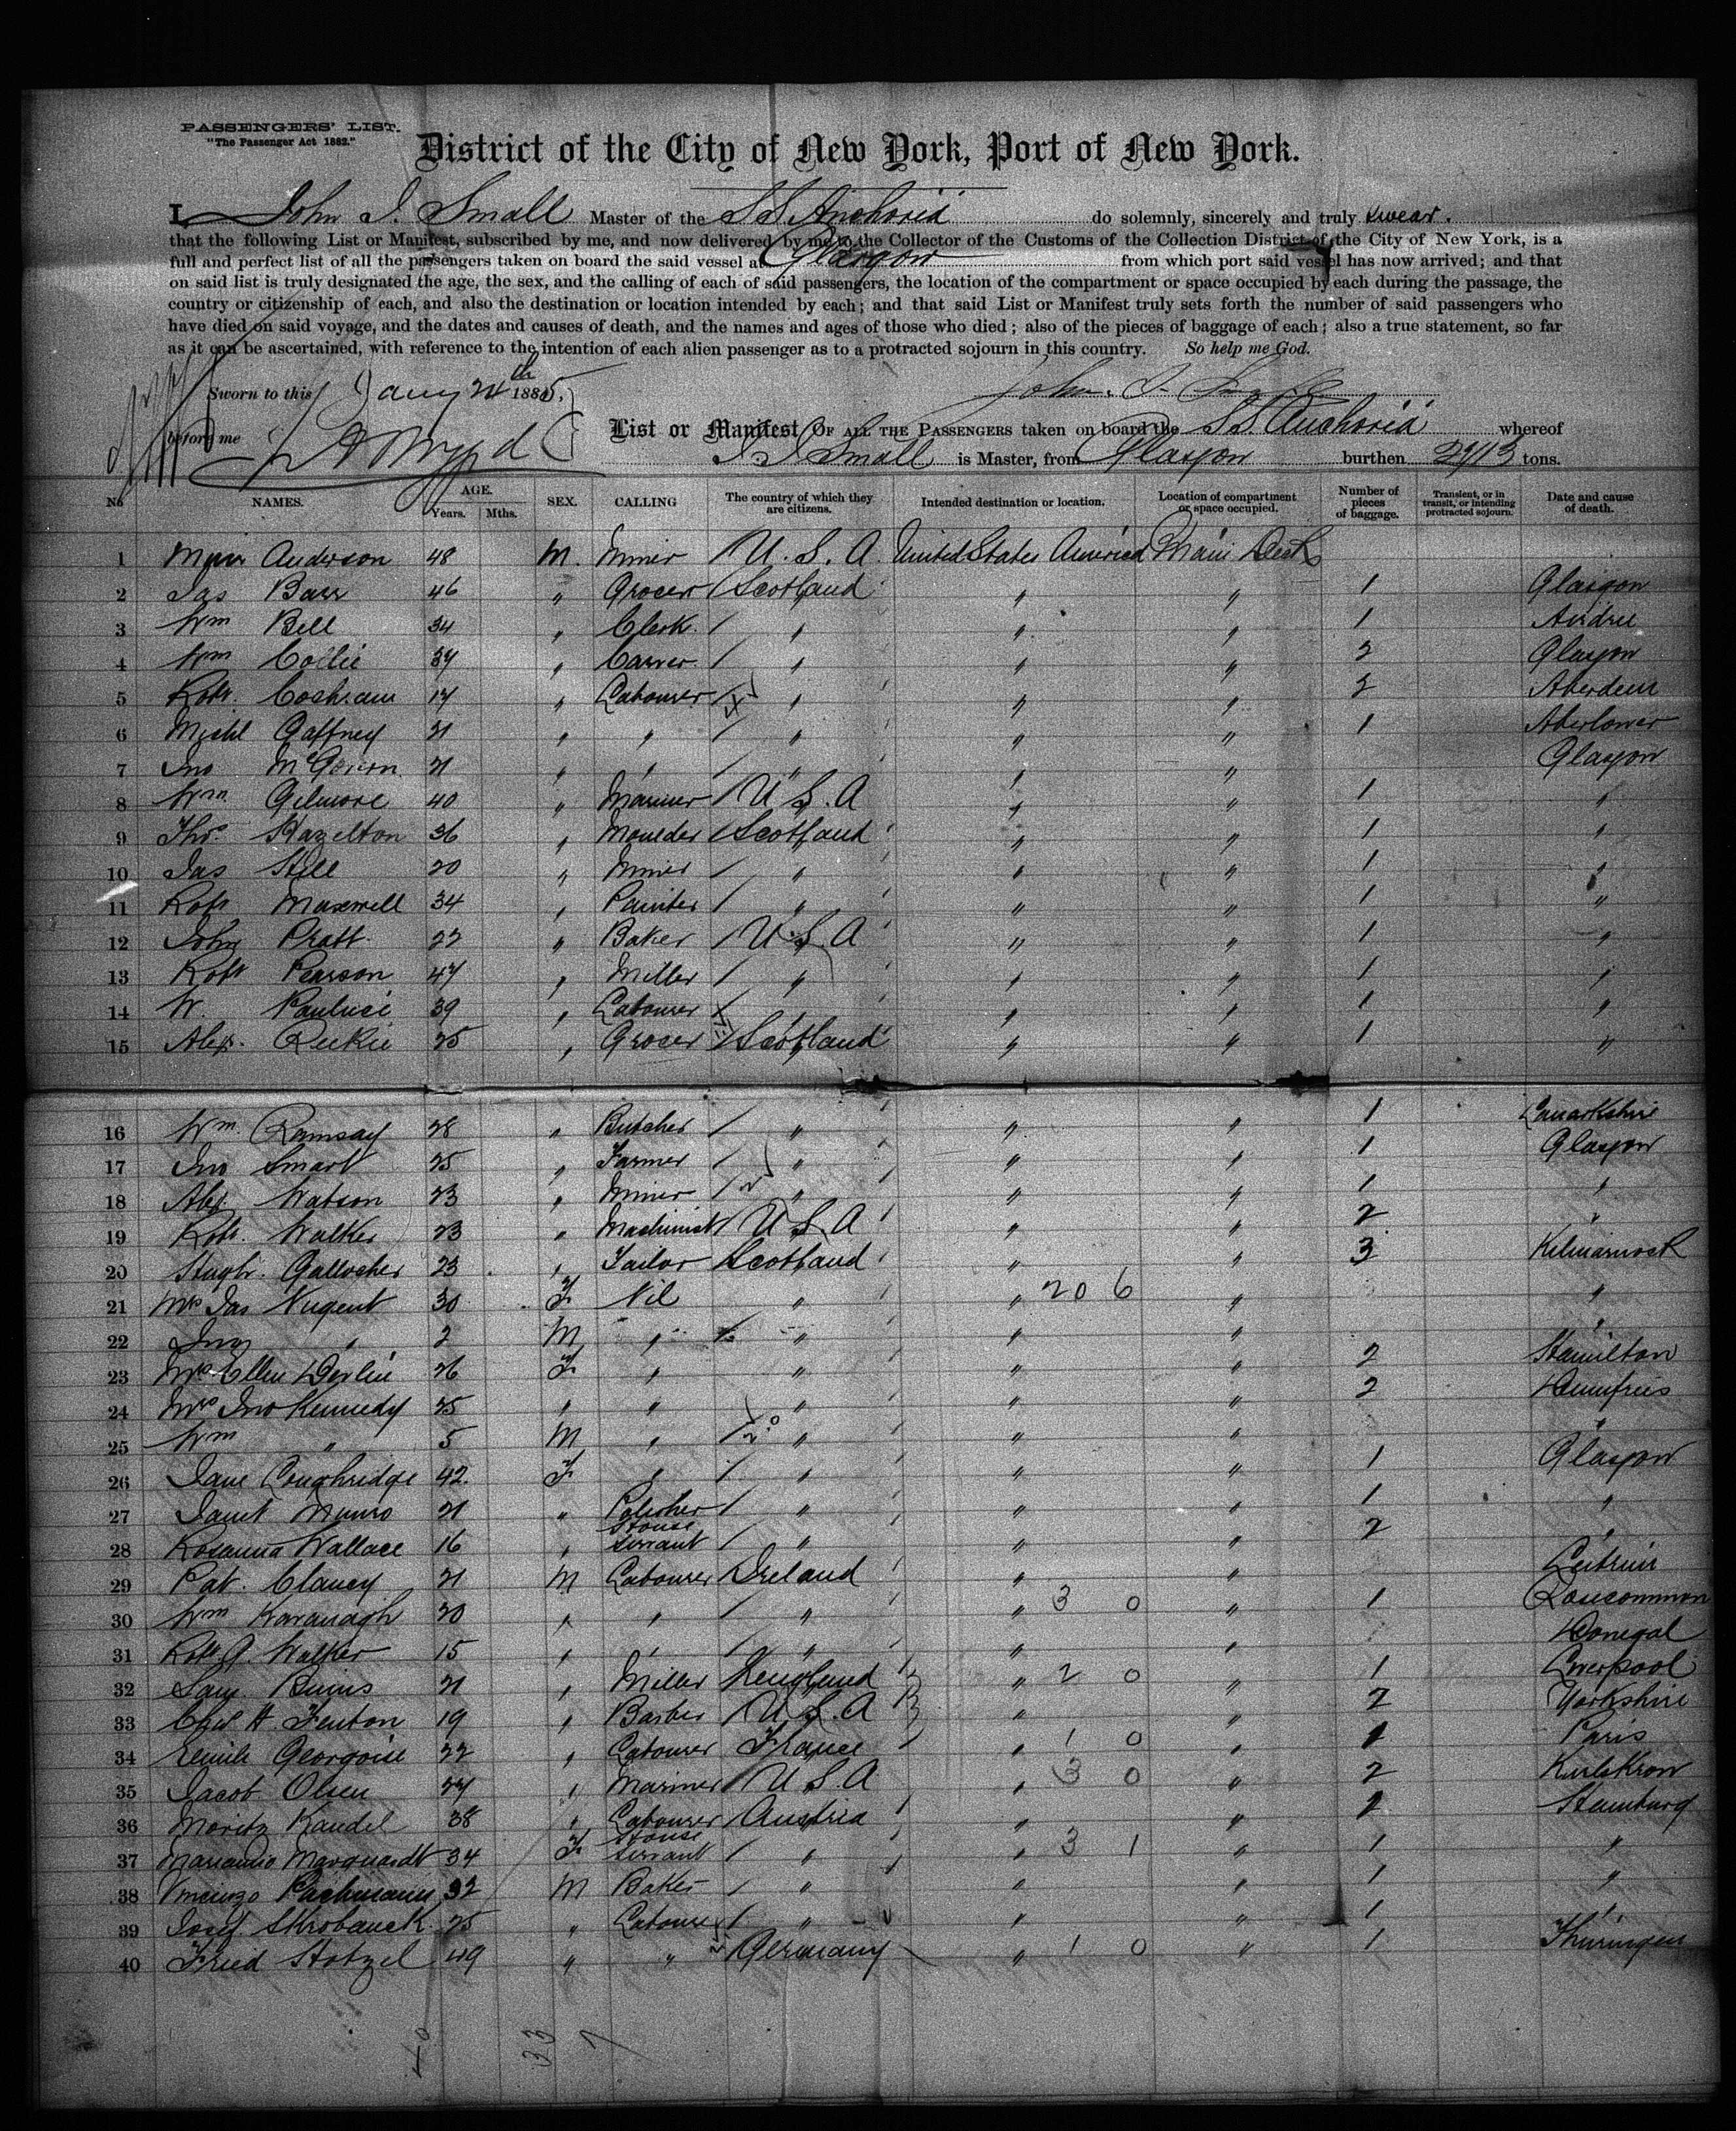 PASSENGERS' LIST.
"The Passenger Act 1882."
District of the City of New York, Port of New York.
I, John J. Small Master of the S.S. Anchoria do solemnly, sincerely and truly swear.
that the following List or Manifest, subscribed by me, and now delivered by me to the Collector of the Customs of the Collection District of the City of New York, is a
full and perfect list of all the passengers taken on board the said vessel at Glasgow from which port said vessel has now arrived; and that
on said list is truly designated the age, the sex, and the calling of each of said passengers, the location of the compartment or space occupied by each during the passage, the
country or citizenship of each, and also the destination or location intended by each; and that said List or Manifest truly sets forth the number of said passengers who
have died on said voyage, and the dates and causes of death, and the names and ages of those who died; also of the pieces of baggage of each; also a true statement, so far
as it can be ascertained, with reference to the intention of each alien passenger as to a protracted sojourn in this country. So help me God.
Sworn to this Jany 24th 1885, John. J. Small
before me
List or Manifest OF ALL THE PASSENGERS taken on board the S.S. Anchoria whereof
J. J. Small is Master, from Glasgow burthen tons.
No NAMES. AGE. Years. Mths. SEX. CALLING The country of which they are citizens. Intended destination or location. Location of compartment or space occupied. Number of pieces of baggage. Transient, or in transit, or intending protracted sojourn. Date and cause of death.
1 Anderson 48 M. Miner U. S. A United States America Main Deck
2 Jas Barr 46 " Grocer Scotland " " 1 Glasgow
3 Wm Bell 34 " Clerk " " " 1 Airdrie
4 Wm Collie 37 " Carver " " " 2 Glasgow
5 Robt. Cochrane 17 " Labourer " " " 2 Aberdeen
6 Michl Gaffney 21 " " " " " 1 Aberlower
7 Jno 21 " " " " " Glasgow
8 Wm Gilmore 40 " Mariner U S. A " " 1 "
9 Thos. Hazelton 36 " Moulder Scotland " " 1 "
10 Jas Still 20 " Miner " " " 1 "
11 Robt Maxwell 34 " Painter " " " 1 "
12 John Pratt 22 " Baker U. S. A " " 1 "
13 Robt Pearson 47 " Miller " " " 1 "
14 W. Pauluci 39 " Labourer " " 1 "
15 Alex. Reekie 25 " Grocer Scotland " " 1 "
16 Wm. Ramsay 28 " Butcher " " " 1 Lanarkshire
17 Jno Smart 25 " Farmer " " " 1 Glasgow
18 Alex Watson 23 " Miner " " " 1 "
19 Robt. Walker 23 " Machinist U S A " " 2 "
20 Hugh. Gallocher 23 " Tailor Scotland " " 3 Kilmarnock
21 Mrs Jas Nugent 30 F Nil " " 20 6 " "
22 Jno " 2 M " " " " "
23 Mrs Ellen Devlin 26 F " " " " 2 Hamilton
24 Mrs Jno Kennedy 25 " " " " " 2 Dumfries
25 Wm " 5 M " " " " "
26 Jane Loughridge 42 F " " " " 1 Glasgow
27 Janet Munro 21 " Polisher " " " 1 "
28 Rosanna Wallace 16 " House servant " " " 2 "
29 Pat. Clancy 21 M Labourer Ireland " " Leitrim
30 Wm Kavanagh 20 " " " " 3 0 " 1 Roscommon
31 Robt. A. Walker 15 " " " " " Donegal
32 Saml. Binns 21 " Miller England " 2 0 " 1 Liverpool
33 Chas H. Fenton 19 " Barber U. S. A " " 2 Yorkshire
34 Emile Georgoise 22 " Labourer France " 1 0 " 1 Paris
35 Jacob Olsen 27 " Mariner U S. A " 3 0 " 2 Karlskron
36 Moritz Kandel 38 " Labourer Austria " " 2 Hamburg
37 Marquardt 34 F House servant " " 3 1 " 1 "
38 Vincenzo Pachmann 32 M Baker " " " 1 "
39 Josef Skrobanek 25 " Labourer " " " 1 "
40 Fried Stotzel 49 " " Germany " 1 0 " 1 Thuringen
40 33 7